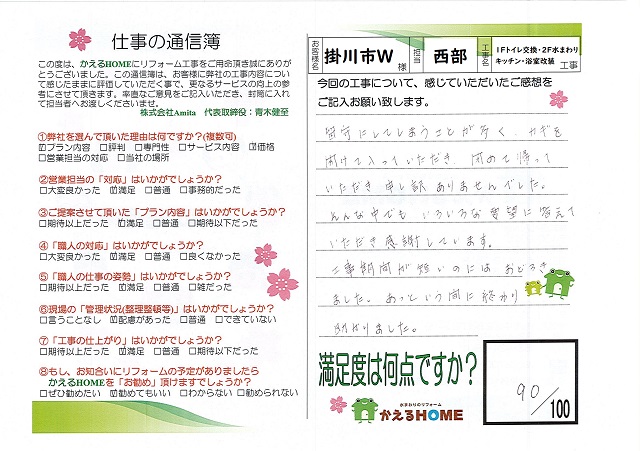 仕事の通信簿
この度は、かえるHOMEにリフォーム工事をご用命頂き誠にありが
とうございました。この通信簿は、お客様に弊社の工事内容につい
て感じたままに評価していただく事で、更なるサービスの向上の参
考にさせて頂きます。率直なご意見をご記入いただき、封筒に入れ
て担当者へお渡しくださいませ。
株式会社Amita 代表取締役：青木健至
①弊社を選んで頂いた理由は何ですか？(複数可)
☑プラン内容 □評判 □専門性 □サービス内容 ☑価格
□営業担当の対応 □当社の場所
②営業担当の「対応」はいかがでしょうか？
□大変良かった ☑満足 □普通 □事務的だった
③ご提案させて頂いた「プラン内容」はいかがでしょうか？
□期待以上だった ☑満足 □普通 □期待以下だった
④「職人の対応」はいかがでしょうか？
□大変良かった ☑満足 □普通 □良くなかった
⑤「職人の仕事の姿勢」はいかがでしょうか？
□期待以上だった ☑満足 □普通 □雑だった
⑥現場の「管理状況(整理整頓等)」はいかがでしょうか？
□言うことなし ☑配慮があった □普通 □できていない
⑦「工事の仕上がり」はいかがでしょうか？
□期待以上だった ☑満足 □普通 □期待以下だった
⑧もし、お知合いにリフォームの予定がありましたら
かえるHOMEを「お勧め」頂けますでしょうか？
□ぜひ勧めたい ☑勧めてもいい □わからない □勧められない
お客様名 掛川市W 様 担当 西部 工事名 1Fトイレ交換・2F水まわり
キッチン・浴室改装 工事
今回の工事について、感じていただいたご感想を
ご記入お願い致します。
留守にしてしまうことが多く、カギを
開けて入っていただき、閉めて帰って
いただき申し訳ありませんでした。
そんな中でも いろいろな要望に答えて
いただき感謝しています。
工事期間が短いのには おどろき
ました。あっという間に終わり
助かりました。
満足度は何点ですか？
90/100
水まわりのリフォーム
かえるHOME